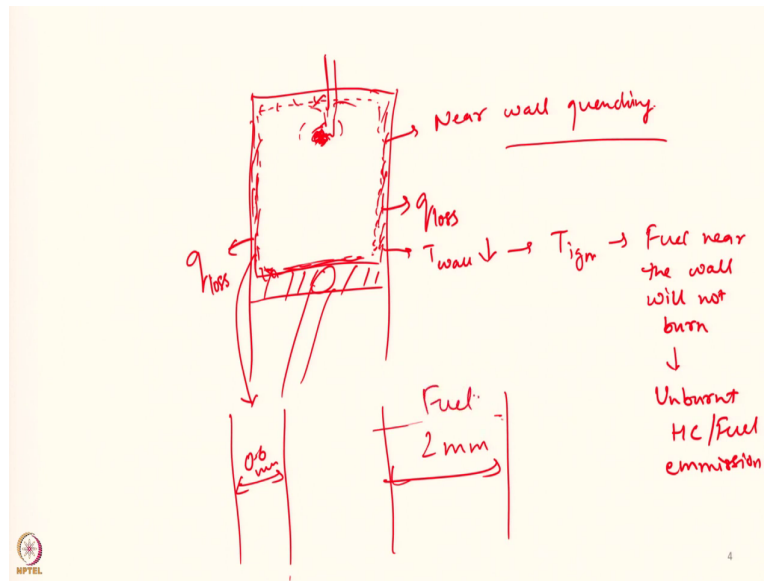 Near wall quenching
qloss
qloss
Twall ↓ → Tign → Fuel near
the wall
will not
burn
↓
Unburnt
HC/Fuel
emmission
Fuel
0.6
mm
2 mm
NPTEL
4